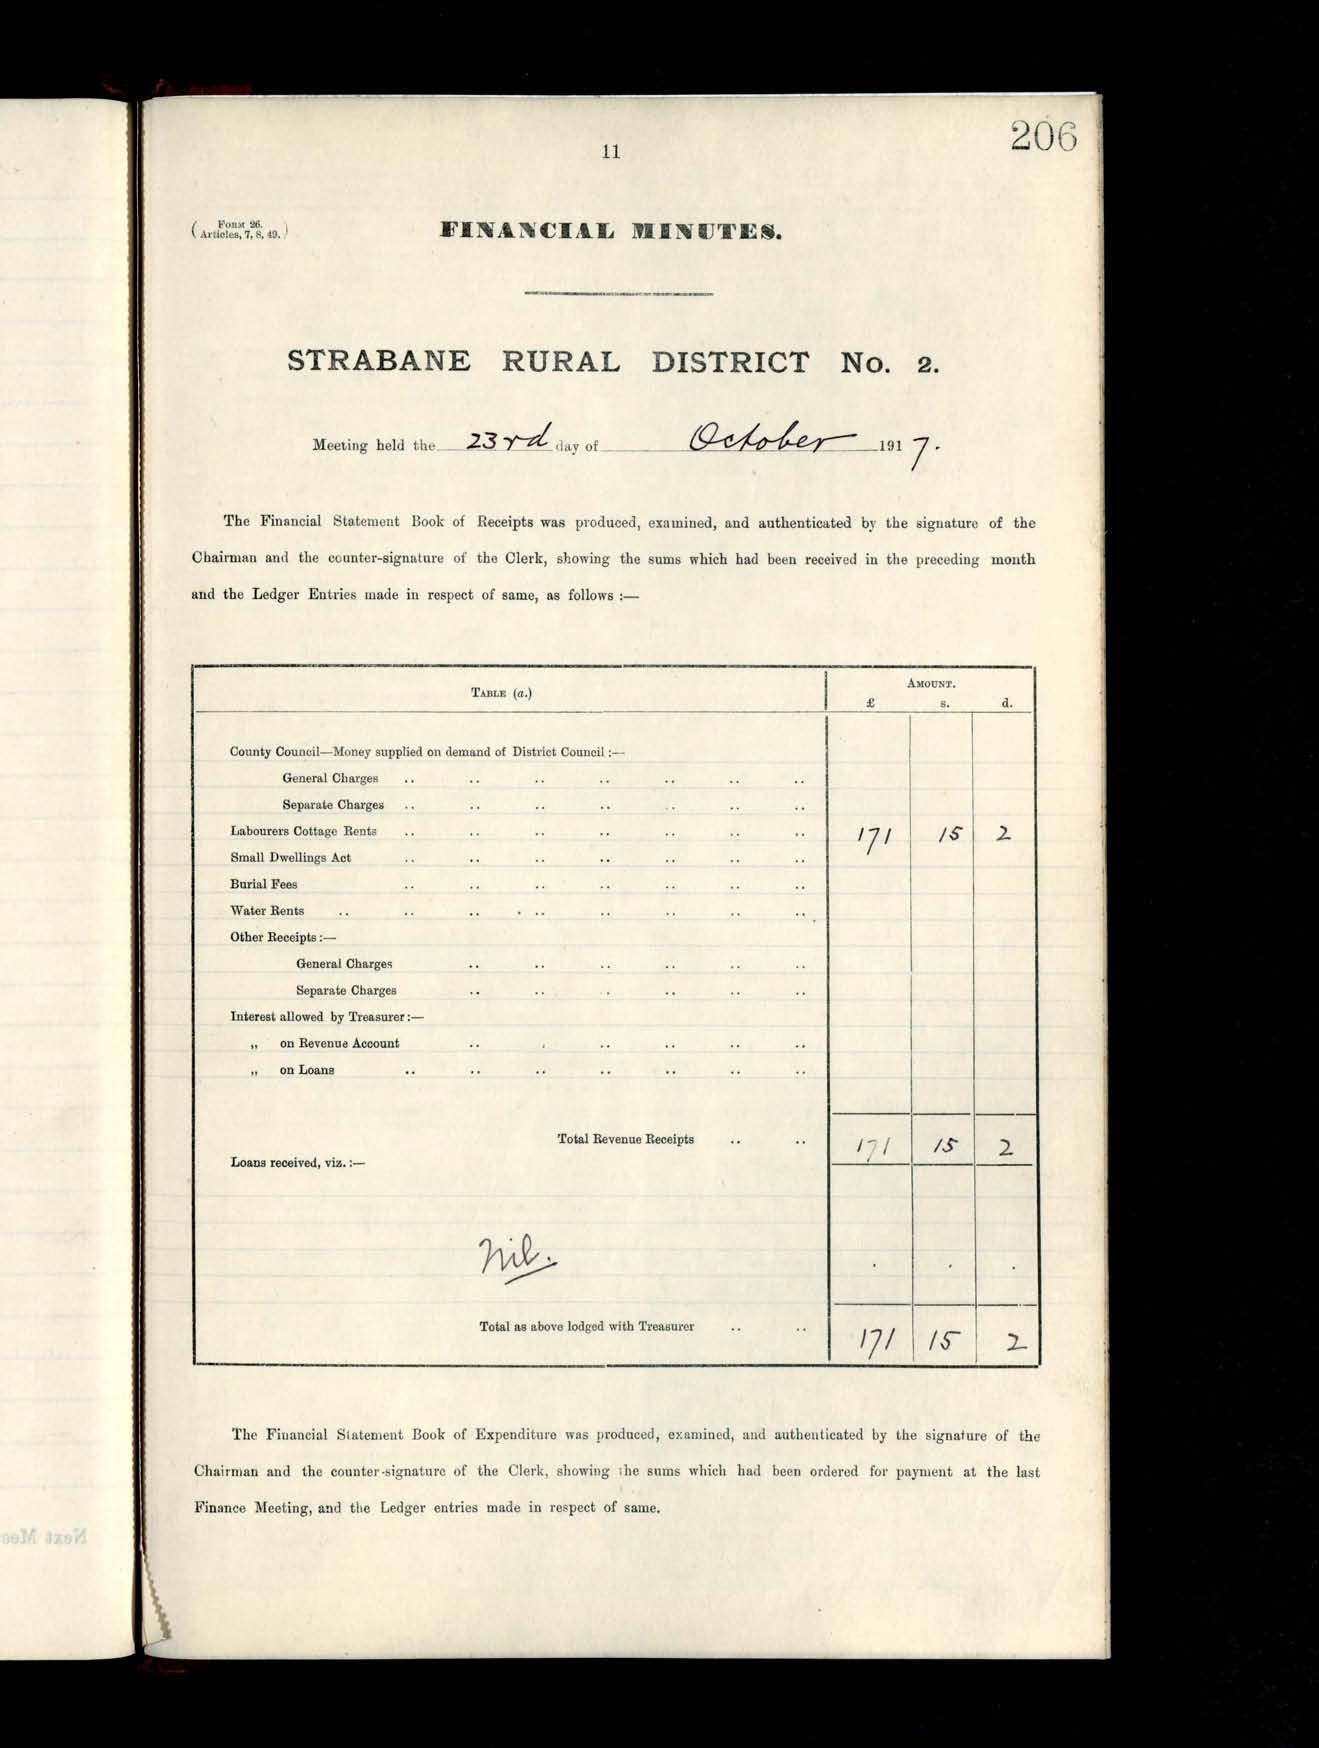 206
11
( Form 26.
Articles, 7, 8, 49. )
FINANCIAL MINUTES.
STRABANE RURAL DISTRICT No. 2.
Meeting held the 23rd day of October 1917.
The Financial Statement Book of Receipts was produced, examined, and authenticated by the signature of the
Chairman and the counter-signature of the Clerk, showing the sums which had been received in the preceding month
and the Ledger Entries made in respect of same, as follows :—
Table (a.) Amount.
£ s. d.
County Council—Money supplied on demand of District Council :—
General Charges .. .. .. .. .. .. ..
Separate Charges .. .. .. .. .. .. ..
Labourers Cottage Rents .. .. .. .. .. .. .. 171 15 2
Small Dwellings Act .. .. .. .. .. .. ..
Burial Fees .. .. .. .. .. .. ..
Water Rents .. .. .. .. .. .. .. ..
Other Receipts :—
General Charges .. .. .. .. .. ..
Separate Charges .. .. .. .. .. ..
Interest allowed by Treasurer :—
„ on Revenue Account .. . .. .. .. ..
„ on Loans .. .. .. .. .. .. ..
Total Revenue Receipts .. .. 171 15 2
Loans received, viz. :—
Nil. . . .
Total as above lodged with Treasurer .. .. 171 15 2
The Financial Statement Book of Expenditure was produced, examined, and authenticated by the signature of the
Chairman and the counter-signature of the Clerk, showing the sums which had been ordered for payment at the last
Finance Meeting, and the Ledger entries made in respect of same.